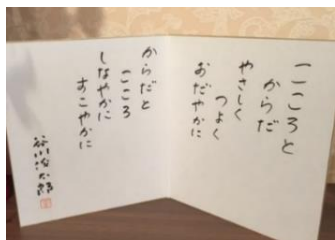 こころと
からだ
やさしく
つよく
おだやかに
からだと
こころ
しなやかに
すこやかに
谷川俊太郎